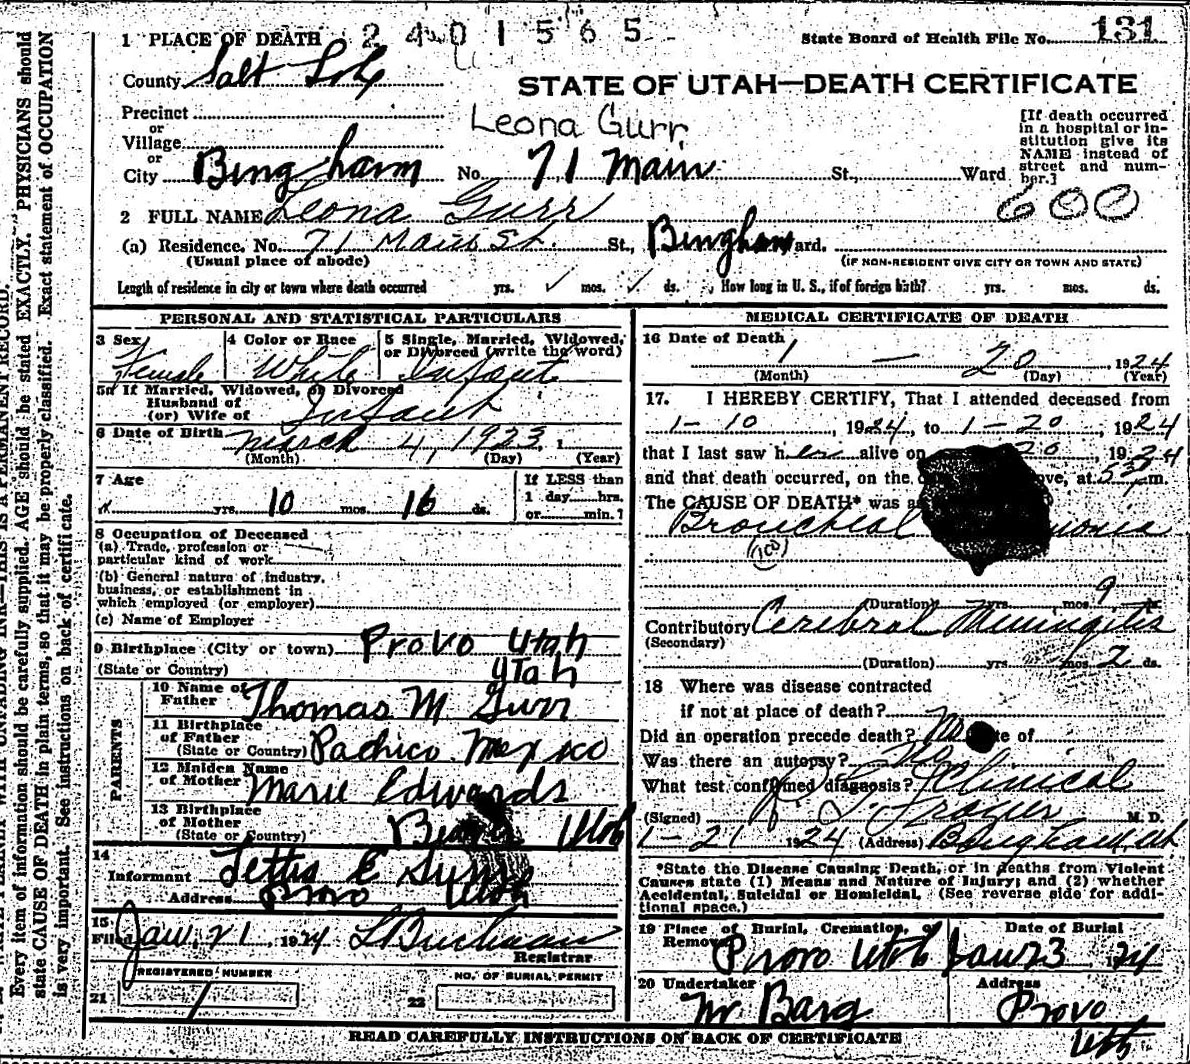 1 PLACE OF DEATH 2401565 State Board of Health File No. 131
County Salt Lake
STATE OF UTAH—DEATH CERTIFICATE
Precinct
or
Village
or
Leona Gurr
[If death occurred in a hospital or institution give its NAME instead of street and number.]
City Bingham No. 71 Main St., Ward
600
2 FULL NAME Leona Gurr
(a) Residence, No. 71 Main St. St., Bingham Ward.
(Usual place of abode) (IF NON-RESIDENT GIVE CITY OR TOWN AND STATE)
Length of residence in city or town where death occurred yrs. mos. ds. How long in U. S., if of foreign birth? yrs. mos. ds.
PERSONAL AND STATISTICAL PARTICULARS
3 Sex 4 Color or Race 5 Single, Married, Widowed, or Divorced (write the word)
Female White Infant
5a If Married, Widowed, or Divorced
Husband of
(or) Wife of Infant
6 Date of Birth March 4, 1923
(Month) (Day) (Year)
7 Age If LESS than
1 day hrs.
yrs. 10 mos. 16 ds. or min.?
8 Occupation of Deceased
(a) Trade, profession or
particular kind of work
(b) General nature of industry,
business, or establishment in
which employed (or employer)
(c) Name of Employer
9 Birthplace (City or town) Provo Utah
(State or Country) Utah
PARENTS
10 Name of Father Thomas M Gurr
11 Birthplace of Father
(State or Country) Pachico Mexico
12 Maiden Name of Mother Marie Edwards
13 Birthplace of Mother
(State or Country) Utah
14
Informant E
Address Provo Utah
15
Filed Jan. 21, 1924 L Buchnan
Registrar
REGISTERED NUMBER NO. OF BURIAL PERMIT
21 1 22
MEDICAL CERTIFICATE OF DEATH
16 Date of Death
1 — 20 1924
(Month) (Day) (Year)
17. I HEREBY CERTIFY, That I attended deceased from
1-10, 1924, to 1-20, 1924
that I last saw her alive on 20, 1924
and that death occurred, on the ve, at m.
The CAUSE OF DEATH* was a
Broncheal monia
(100)
(Duration) yrs. mos. 9 ds.
Contributory Cerebral Meningitis
(Secondary)
(Duration) yrs. mos. 2 ds.
18 Where was disease contracted
if not at place of death?
Did an operation precede death? No te of
Was there an autopsy? No
What test confirmed diagnosis? Clinical
(Signed) Frazier M. D.
1-21 1924 (Address) Bingham, Ut
*State the Disease Causing Death, or in deaths from Violent
Causes state (1) Means and Nature of Injury; and (2) whether
Accidental, Suicidal or Homicidal. (See reverse side for addi-
tional space.)
19 Place of Burial, Cremation, or Removal Date of Burial
Provo Utah Jan 23 24
20 Undertaker Address
Mr Barg Provo
Utah
READ CAREFULLY INSTRUCTIONS ON BACK OF CERTIFICATE
Every item of information should be carefully supplied. AGE should be stated EXACTLY. PHYSICIANS should
state CAUSE OF DEATH in plain terms, so that it may be properly classified. Exact statement of OCCUPATION
is very important. See instructions on back of certificate.